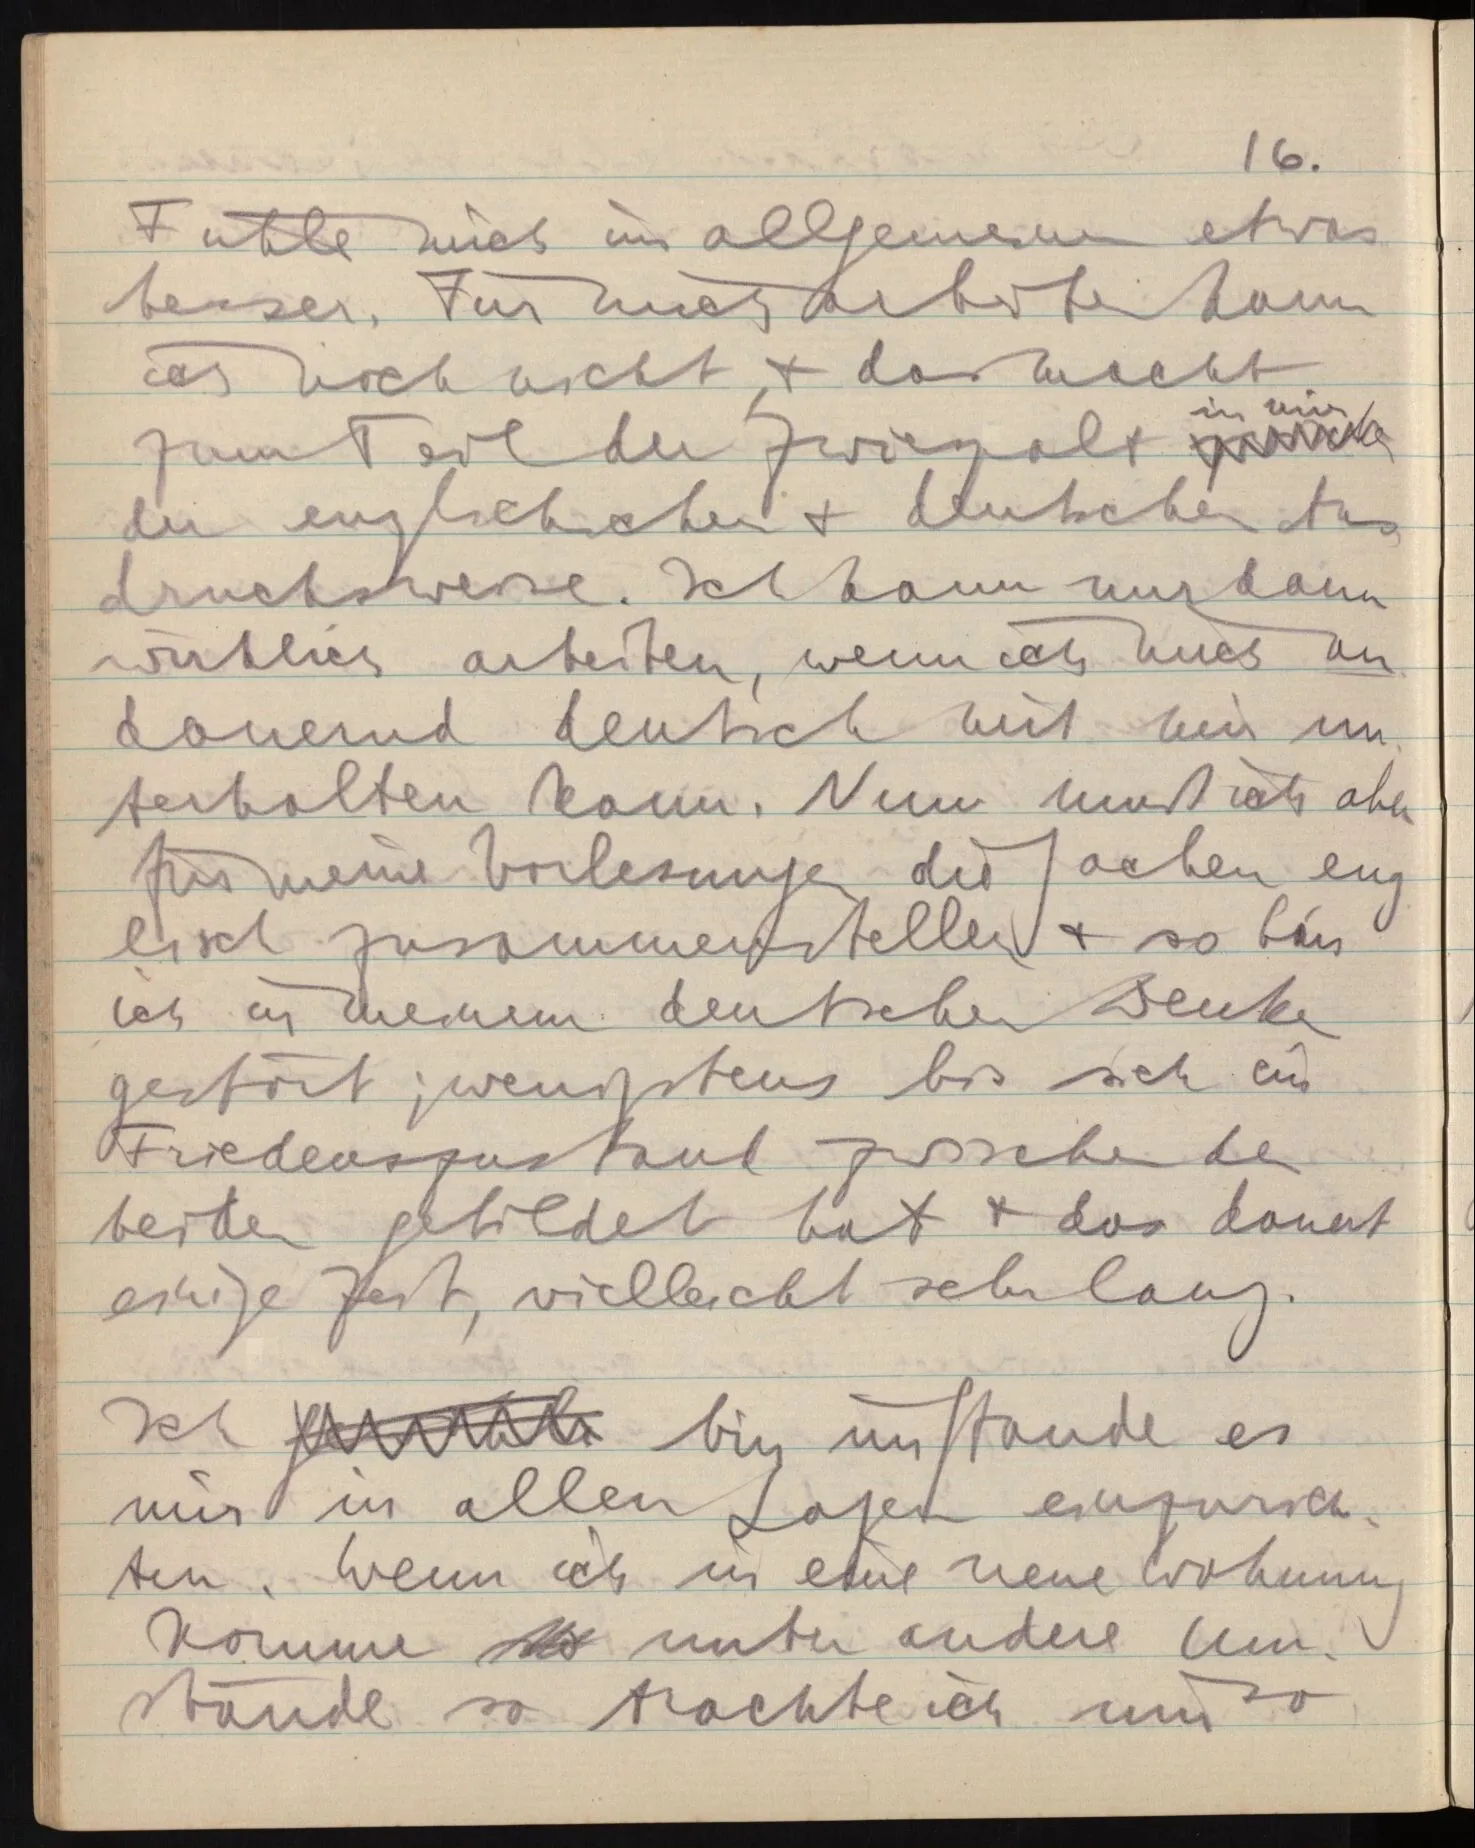 16.
Fühle mich im allgemeinen etwas
besser. Für mich arbeiten kann
ich noch nicht, + das macht
zum Teil der Zwiespalt in mir
der englischen + deutschen Aus
drucksweise. Ich kann nur dann
wirklich arbeiten, wenn ich mich an
dauernd deutsch mit mir un-
terhalten kann. Nun muß ich aber
für meine Vorlesungen die Sachen eng
lisch zusammenstellen + so bin
ich in meinem deutschen Denken
gestört; wenigstens bis sich ein
Friedenszustand zwischen den
beiden gebildet hat + das dauert
einige Zeit, vielleicht sehr lang.
Ich bin imstande es
mir in allen Lagen einzurich-
ten. Wenn ich in eine neue Wohnung
komme unter andere Um-
stände so trachte ich mir so